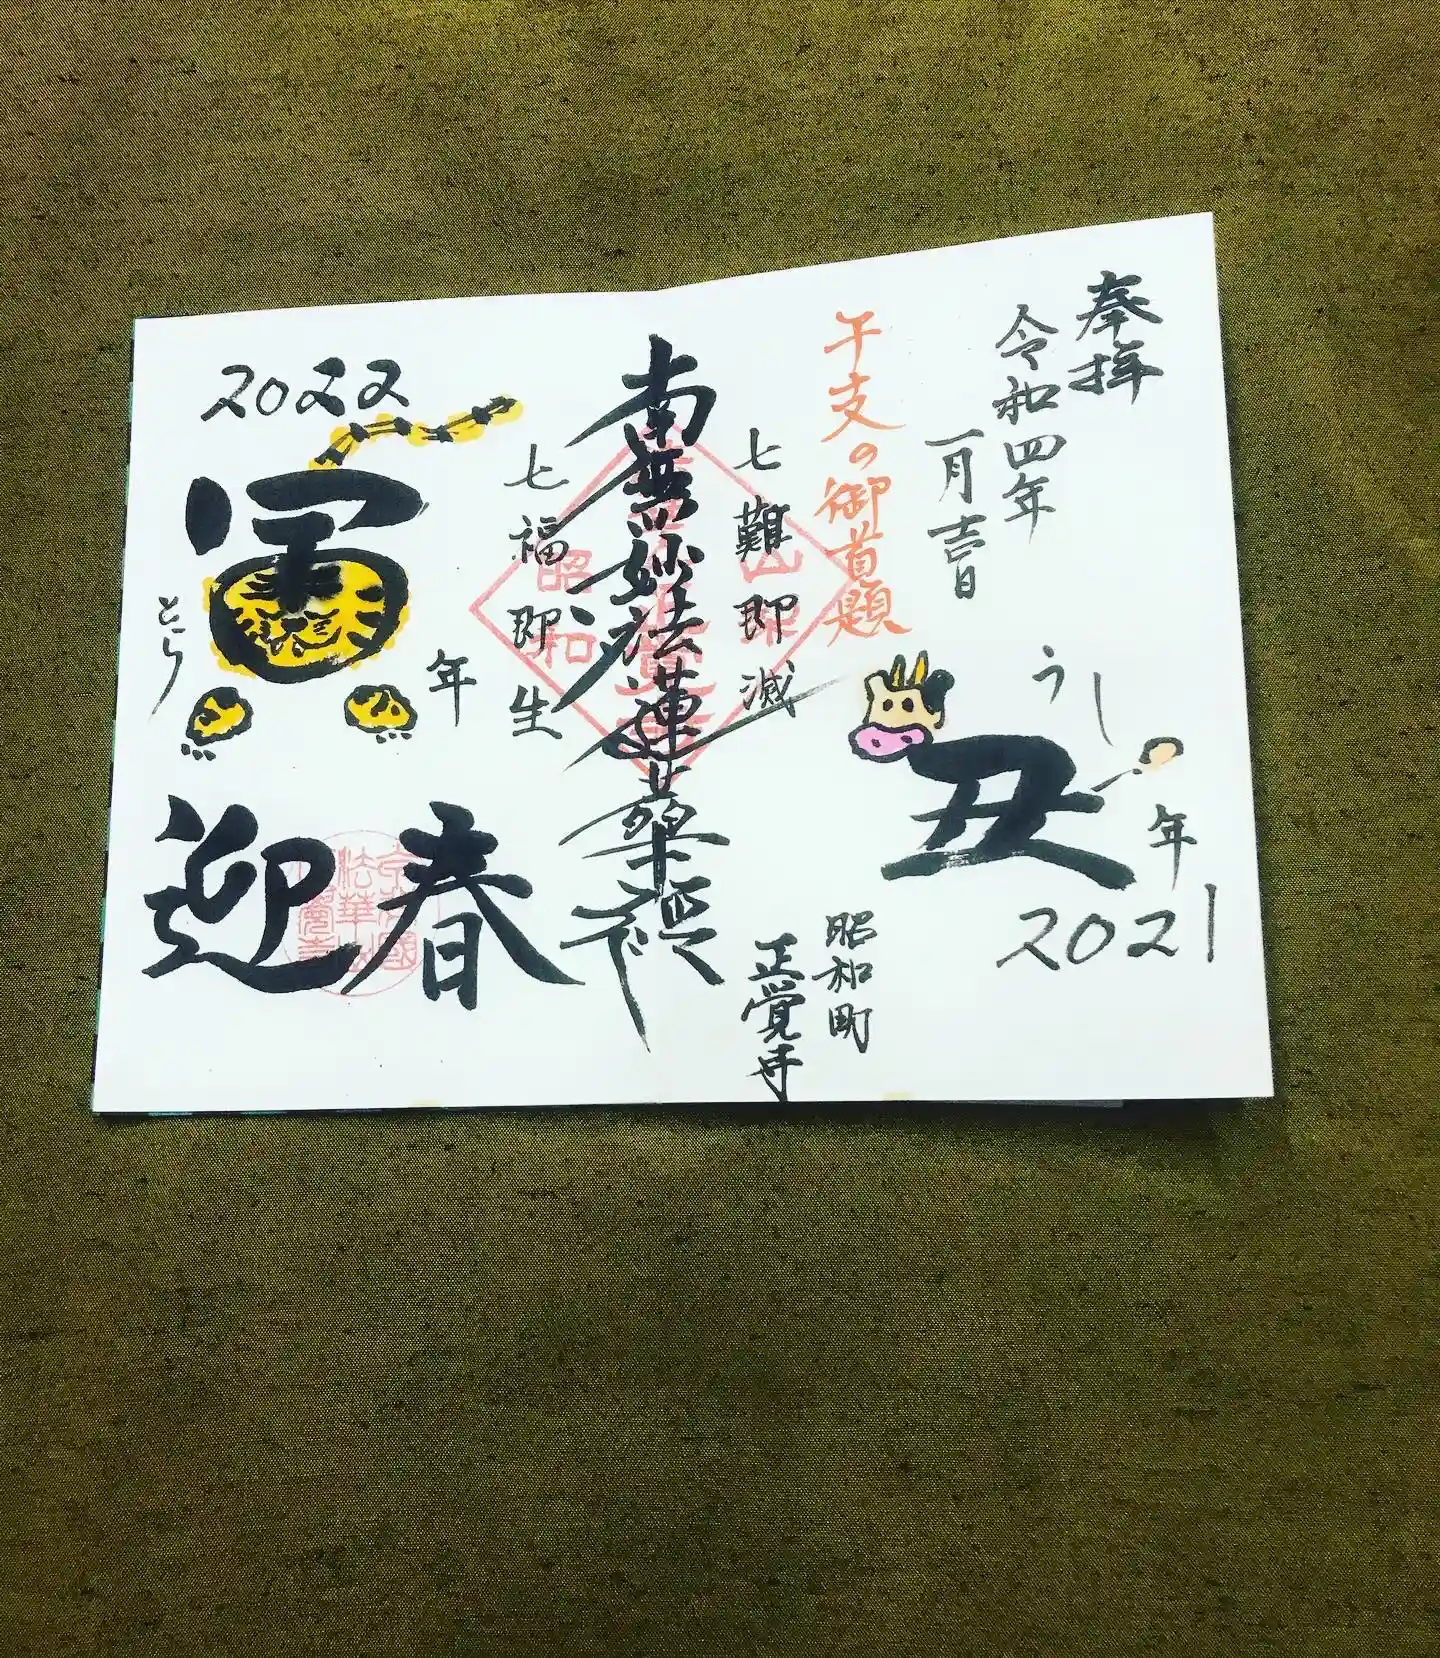 奉拝
令和四年
一月吉日
うし
丑
年
2021
干支の御首題
昭和町
正覚寺
七難即滅
南無妙法蓮華経
七福即生
2022
寅
とら
年
迎春
昭和
法華